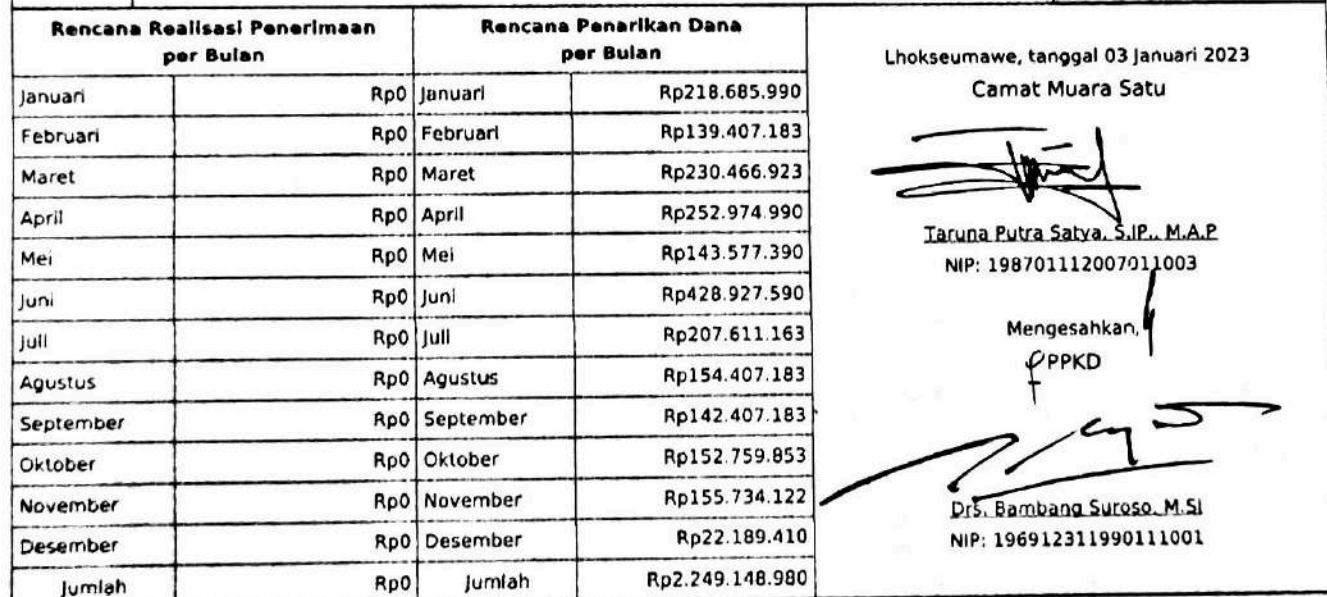 Rencana Realisasi Penerimaan
per Bulan
Rencana Penarikan Dana
per Bulan
Januari Rp0 Januari Rp218.685.990
Februari Rp0 Februari Rp139.407.183
Maret Rp0 Maret Rp230.466.923
April Rp0 April Rp252.974.990
Mei Rp0 Mei Rp143.577.390
Juni Rp0 Juni Rp428.927.590
Juli Rp0 Juli Rp207.611.163
Agustus Rp0 Agustus Rp154.407.183
September Rp0 September Rp142.407.183
Oktober Rp0 Oktober Rp152.759.853
November Rp0 November Rp155.734.122
Desember Rp0 Desember Rp22.189.410
Jumlah Rp0 Jumlah Rp2.249.148.980
Lhokseumawe, tanggal 03 Januari 2023
Camat Muara Satu
Taruna Putra Satya, S.IP., M.A.P
NIP: 198701112007011003
Mengesahkan,
PPKD
Drs. Bambang Suroso, M.Si
NIP: 196912311990111001